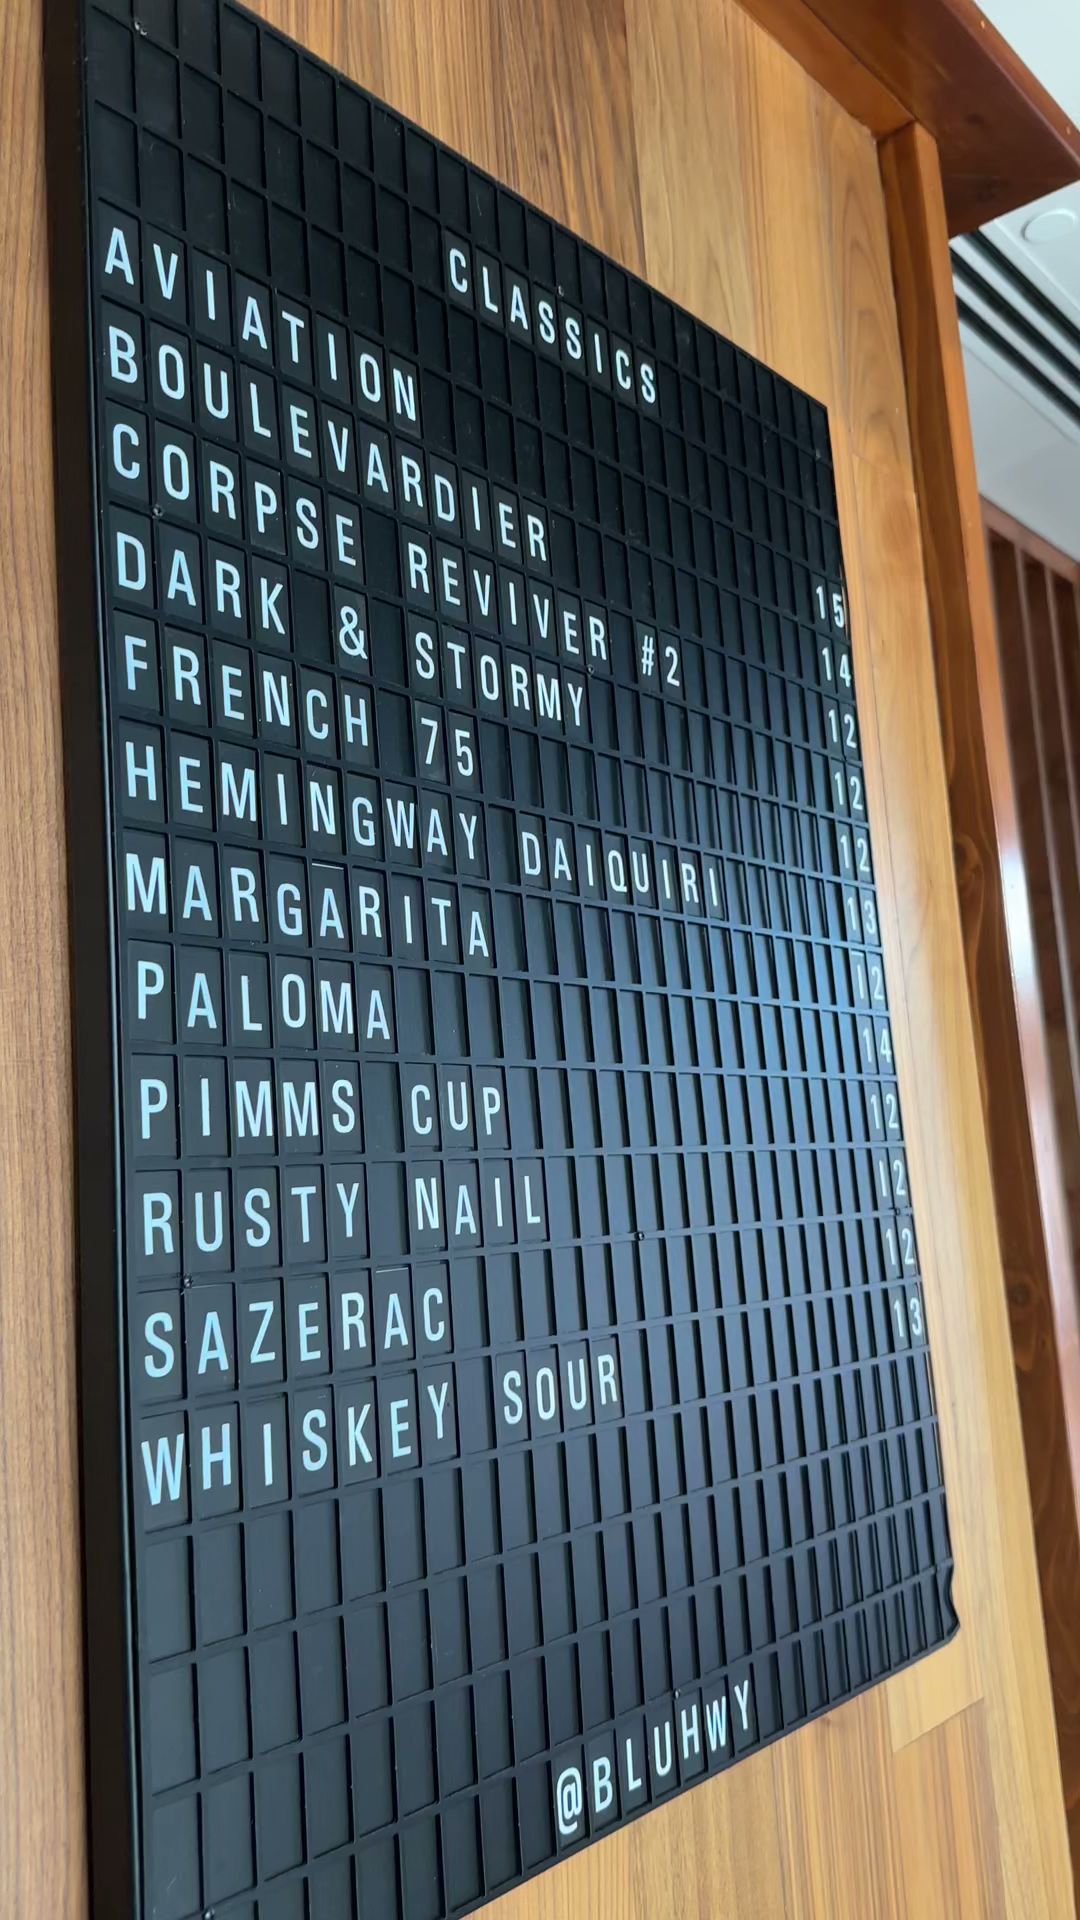 CLASSICS
AVIATION 15
BOULEVARDIER 14
CORPSE REVIVER #2 12
DARK & STORMY 12
FRENCH 75 12
HEMINGWAY DAIQUIRI 13
MARGARITA 12
PALOMA 14
PIMMS CUP 12
RUSTY NAIL 12
SAZERAC 12
WHISKEY SOUR 13
@BLUHWY